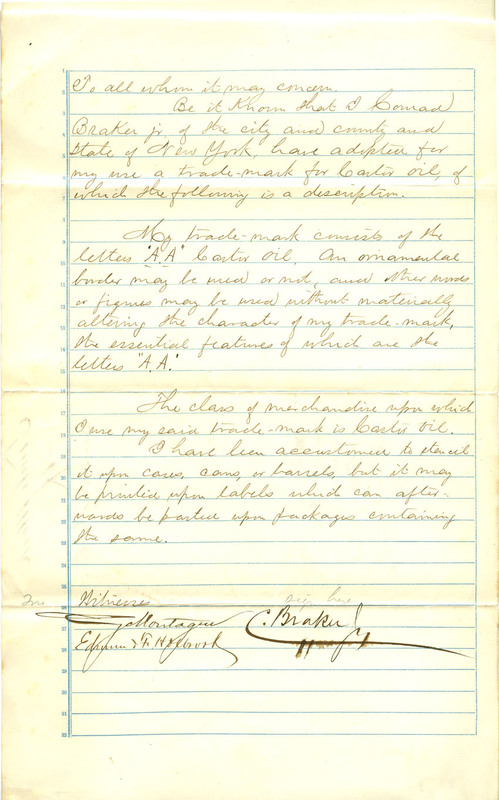 To all whom it may concern.
Be it Known that I Conrad
Braker jr. of the city and county and
State of New York, have adopted for
my use a trade-mark for Castor oil, of
which the following is a description.
My trade-mark consists of the
letters "A.A" Castor Oil. An ornamental
border may be used or not, and other words
or figures may be used without materially
altering the character of my trade-mark,
the essential features of which are the
letters "A.A."
The class of merchandise upon which
I use my said trade-mark is Castor Oil.
I have been accustomed to stencil
it upon cases, cans, or barrels, but it may
be printed upon labels which can after-
wards be pasted upon packages containing
the same.
Witnesses sign here
Montague C. Braker Jr
F. Holbrook